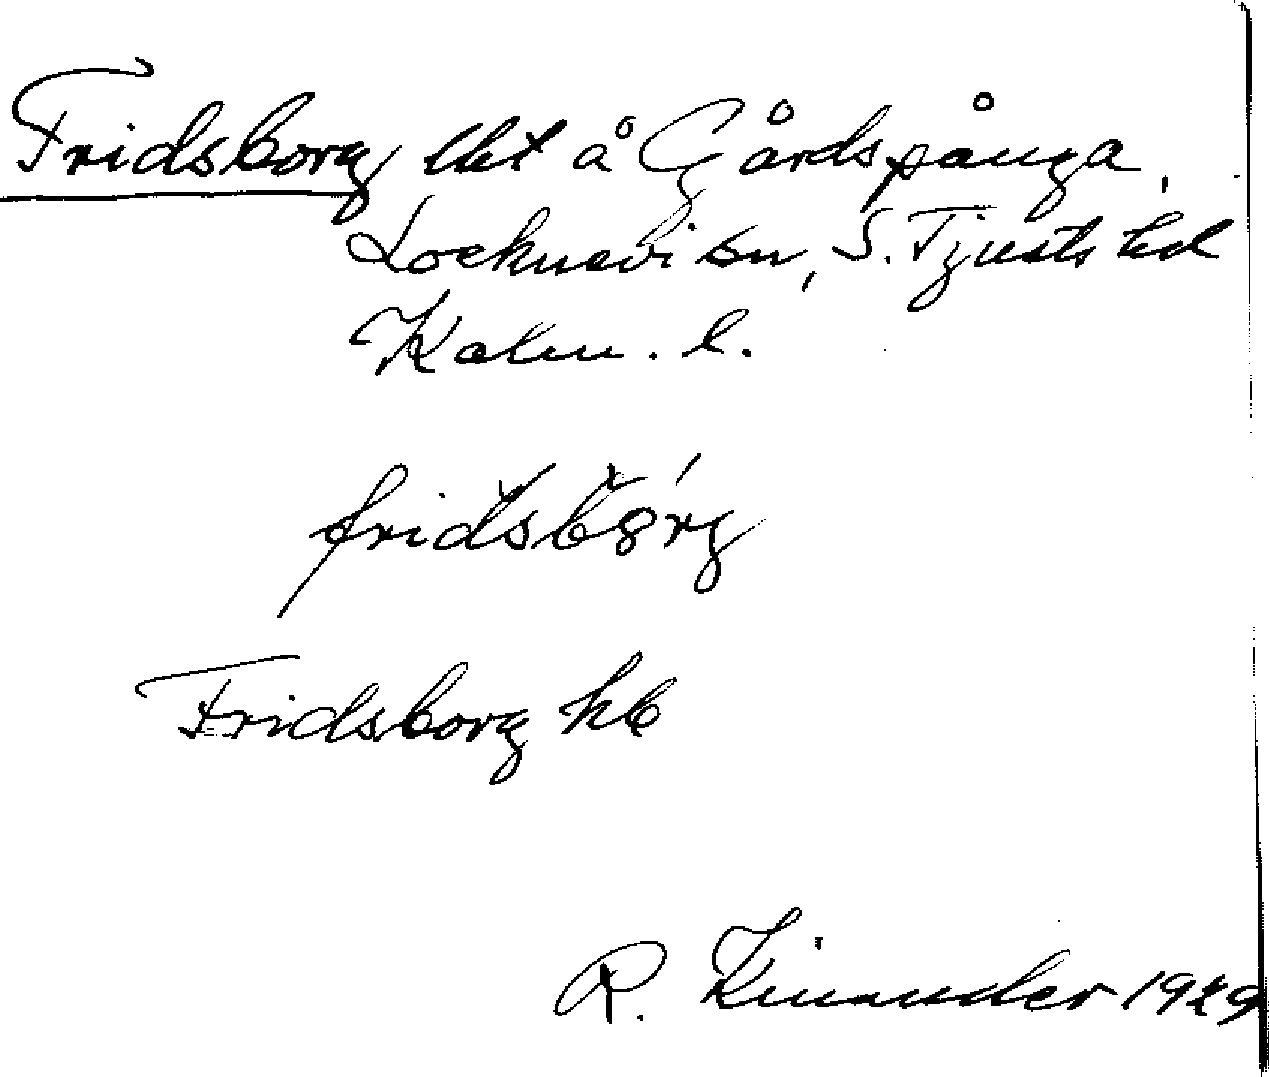 Fridsborg lht å Gårdspånga,
Locknevi sn, S. Tjusts hd
Kalm. l.
fridsbórg
Fridsborg kb
R. Kinander 1929